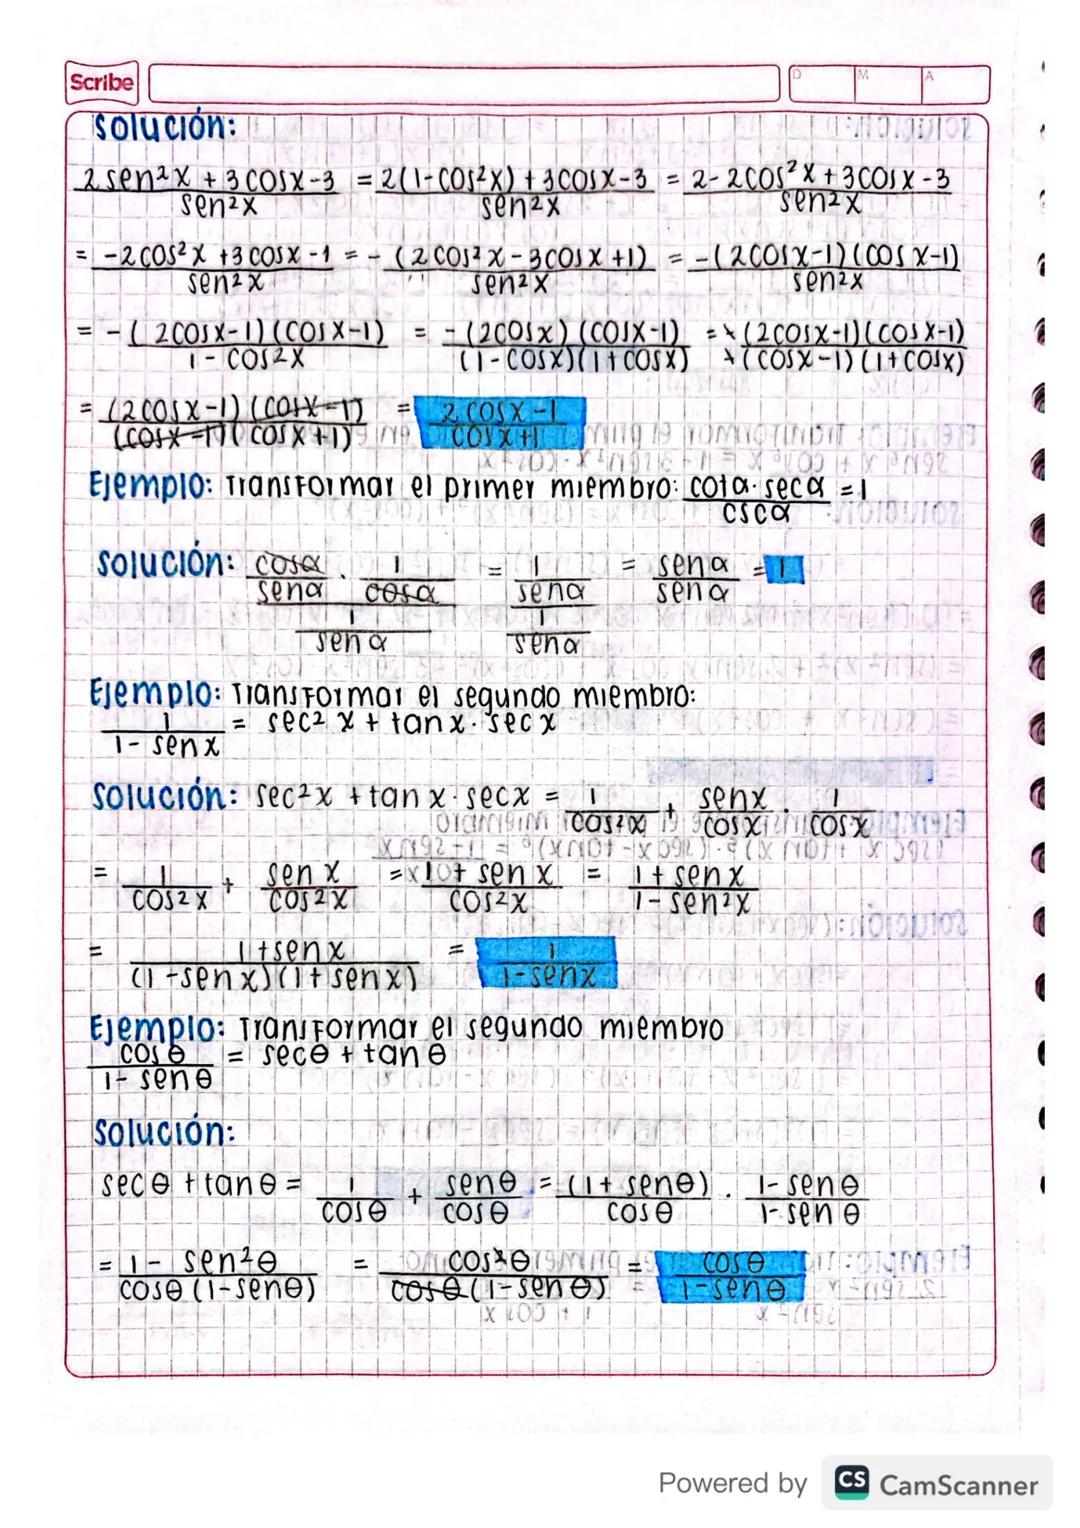 Scribe
D M A
Solución:
2sen²x + 3cosx-3 / sen²x = 2(1-cos²x) + 3cosx-3 / sen²x = 2-2cos²x + 3cosx-3 / sen²x
= -2cos²x + 3cosx-1 / sen²x = - (2cos²x-3cosx+1) / sen²x = -(2cosx-1)(cosx-1) / sen²x
= -(2cosx-1)(cosx-1) / 1-cos2x = -(2cosx)(cosx-1) / (1-cosx)(1+cosx) = ⨯(2cosx-1)(cosx-1) / ⨯(cosx-1)(1+cosx)
= (2cosx-1)(cosx-1) / (cosx-1)(cosx+1) = 2cosx-1 / cosx+1
Ejemplo: Transformar el primer miembro: cotα·secα / cscα = 1
Solución: cosα / senα · 1 / cosα / 1 / senα = 1 / senα / 1 / senα = senα / senα = 1
Ejemplo: Transformar el segundo miembro:
1 / 1-senx = sec²x + tanx·secx
Solución: sec²x + tanx·secx = 1 / cos²x + senx / cosx · 1 / cosx
= 1 / cos²x + senx / cos²x = 1+senx / cos²x = 1+senx / 1-sen²x
= 1+senx / (1-senx)(1+senx) = 1 / 1-senx
Ejemplo: Transformar el segundo miembro
cosθ / 1-senθ = secθ + tanθ
Solución:
secθ + tanθ = 1 / cosθ + senθ / cosθ = (1+senθ) / cosθ · 1-senθ / 1-senθ
= 1-sen²θ / cosθ(1-senθ) = cos²θ / cosθ(1-senθ) = cosθ / 1-senθ
Powered by CS CamScanner